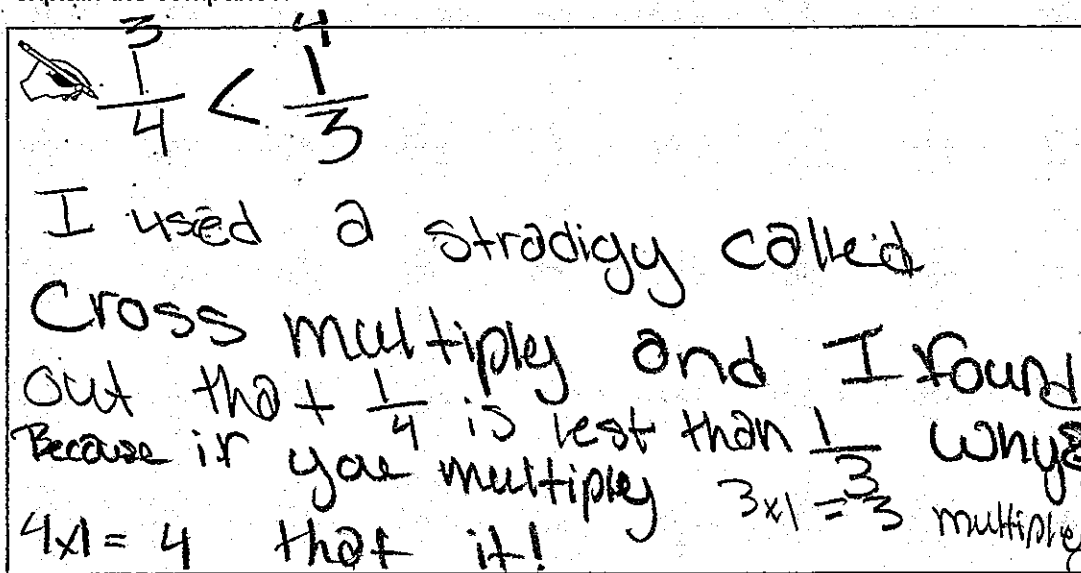 3 4
1/4 < 1/3
I used a stradigy called
Cross multiply and I found
out that 1/4 is lest than 1/3 why?
Because if you multiply 3x1=3 multiply
4x1=4 that it!